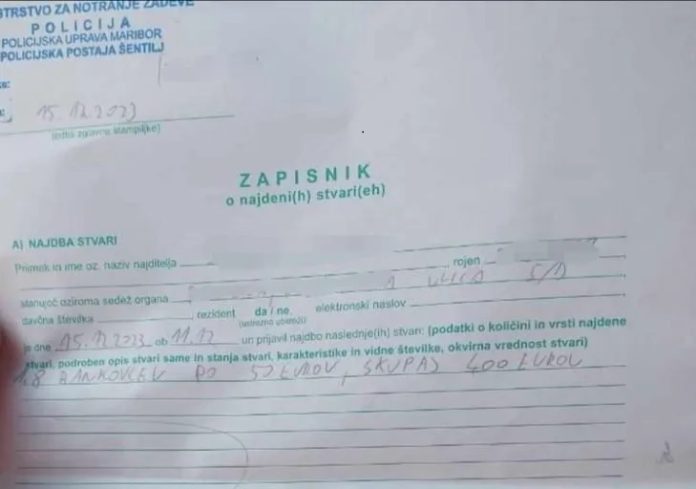 STRSTVO ZA NOTRANJE ZADEVE
POLICIJA
POLICIJSKA UPRAVA MARIBOR
POLICIJSKA POSTAJA ŠENTILJ
15.12.2023
(odtis zglavne štampiljke)
ZAPISNIK
o najdeni(h) stvari(eh)
A) NAJDBA STVARI
Priimek in ime oz. naziv najditelja
rojen
stanujoč oziroma sedež organa ULICA
davčna številka , rezident da / ne, elektronski naslov
(ustrezno obkroži)
je dne 15.12.2023 ob 11.12 uri prijavil najdbo naslednje(ih) stvari: (podatki o količini in vrsti najdene
stvari, podroben opis stvari same in stanja stvari, karakteristike in vidne številke, okvirna vrednost stvari)
8 BANKOVCEV PO 50 EUROV, SKUPAJ 400 EUROV